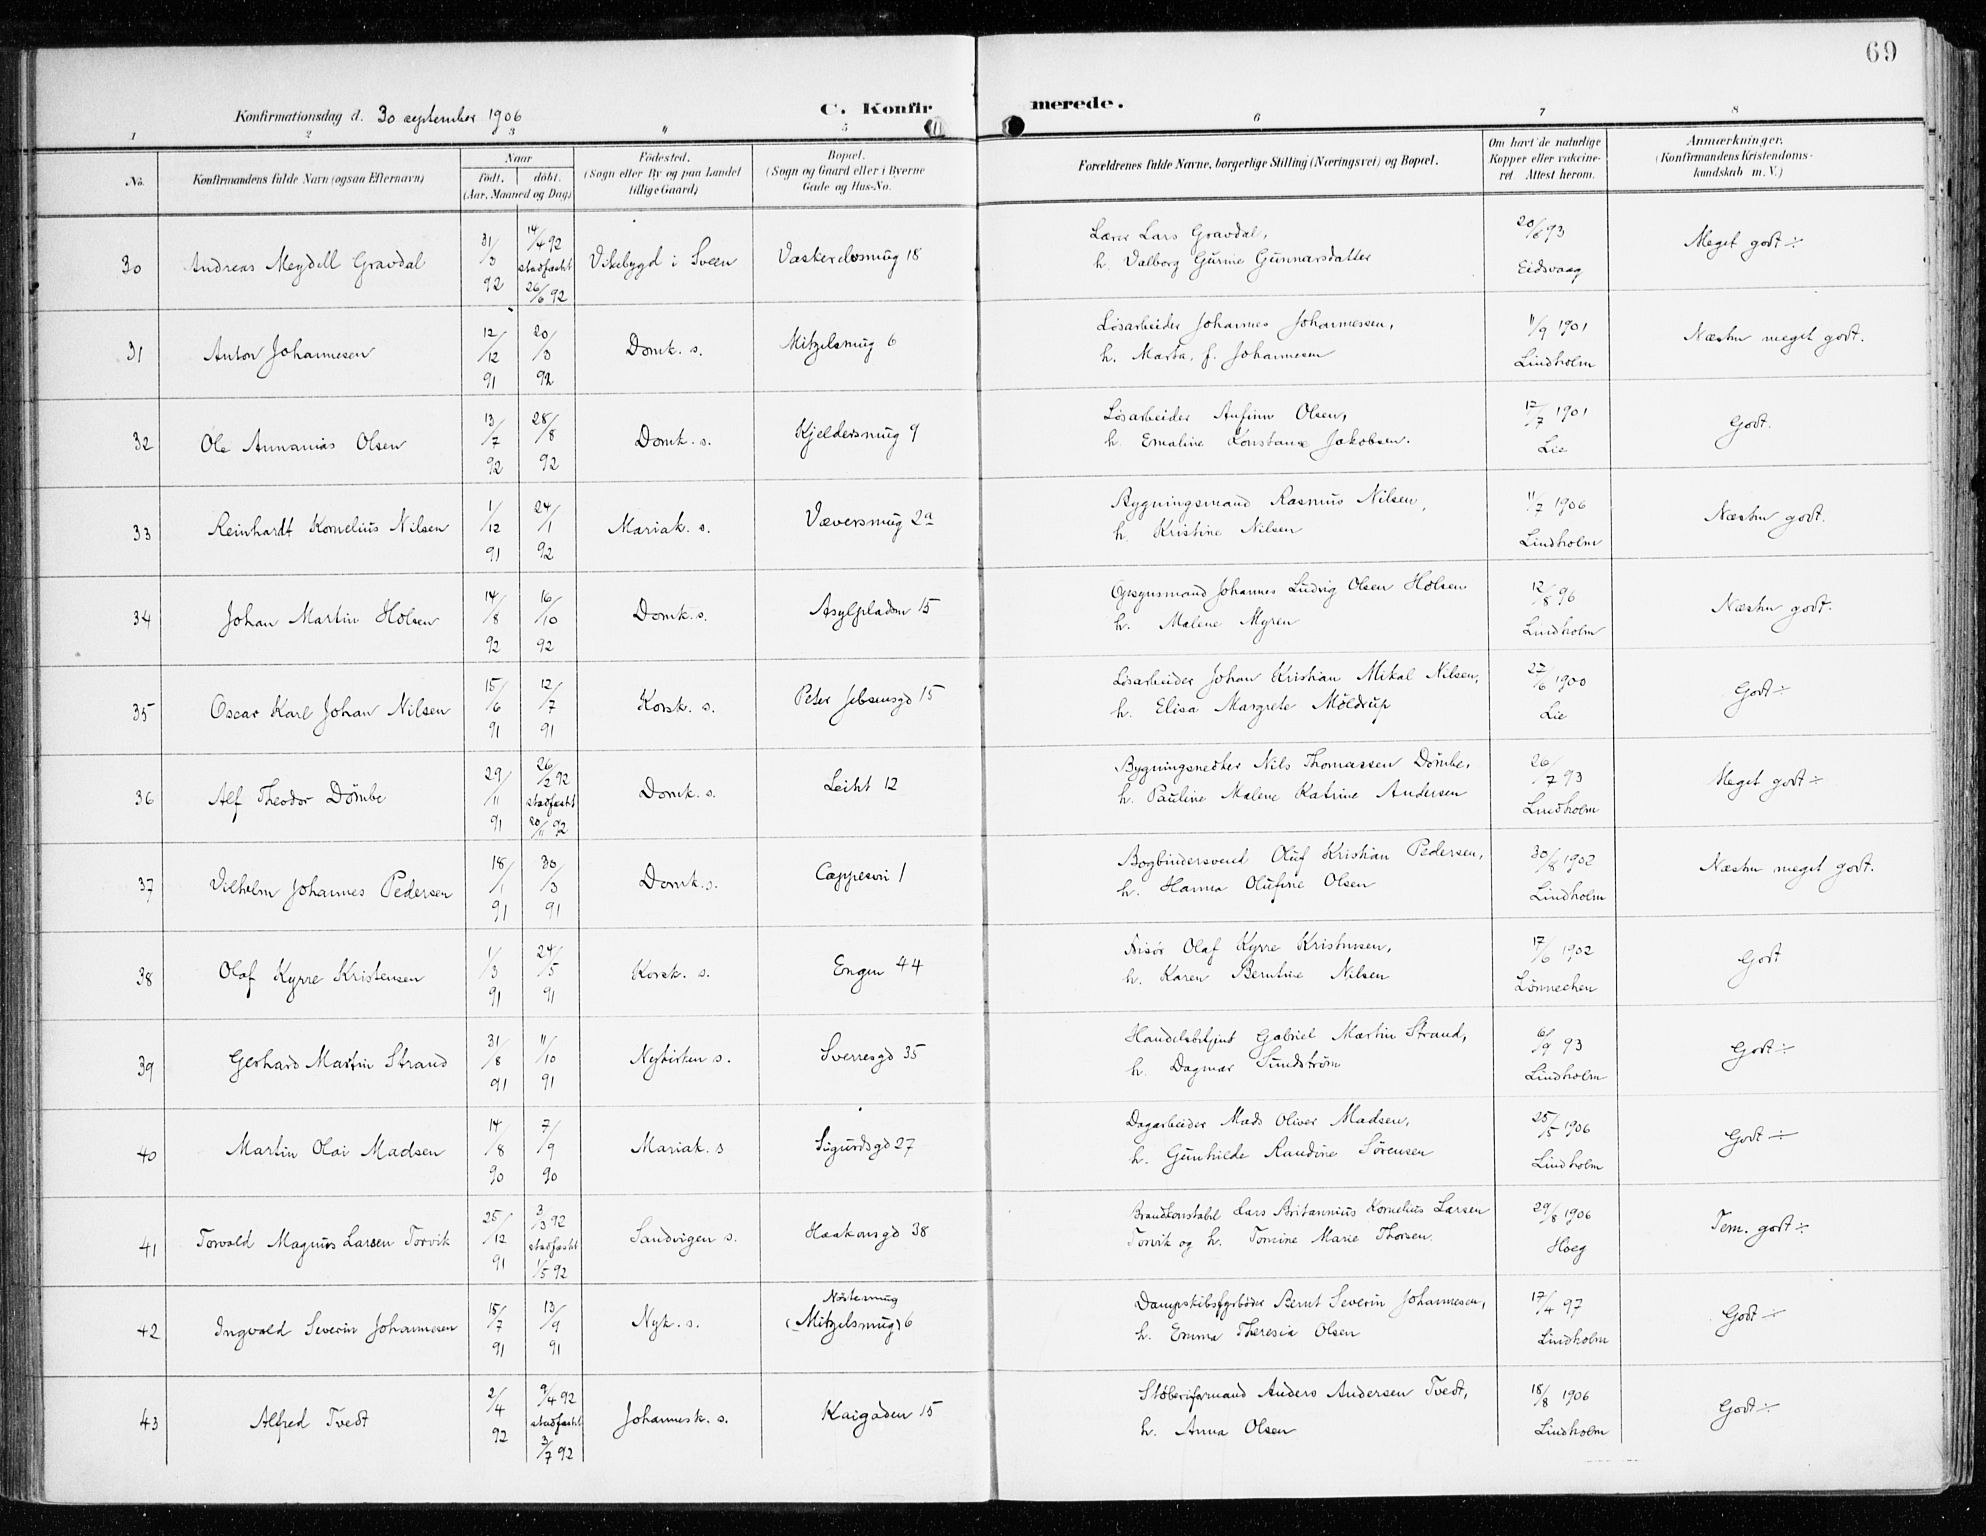 69
Konfirmationsdag d. 30 september 1906
C. Konfirmerede.
1 2 3 " 5 6 7 8
No. Konfirmandens fulde Navn (ogsaa Efternavn) Naar født. døbt. (Aar, Maaned og Dag) Fødested. (Sogn eller By og paa Landet tillige Gaard) Bopæl. (Sogn og Gaard eller i Byerne Gade og Hus-No. Forældrenes fulde Navne, borgerlige Stilling (Næringsvei) og Bopæl. Om havt de naturlige Kopper eller vakcineret Attest herom. Anmærkninger, (Konfirmandens Kristendomskundskab m. V.)
30 Andreas Meydell Gravdal 31/3 92 14/4 92 stadfæstet 26/6 92 Vikebygd i Sveen Vaskerelvsmug 18 Lærer Lars Gravdal, h. Valborg Gurine Gunnarsdatter 20/6 93 Eidsvaag Meget godt ÷
31 Anton Johannesen 12/12 91 20/3 92 Domk. s. Mitzelsmug 6 Løsarbeider Johannes Johannessen, h. Marta, f. Johannesen 11/9 1901 Lindholm Næsten meget godt.
32 Ole Annanias Olsen 13/7 92 28/8 92 Domk. s. Kjeldersmug 9 Løsarbeider Anfinn Olsen, h. Emaline Konstanse Jakobsen. 12/7 1901 Lie Godt.
33 Reinhardt Kornelius Nilsen 1/12 91 24/1 92 Mariak. s. Væversmug 2a Bygningsmand Rasmus Nilsen, h. Kristine Nilsen 11/7 1906 Lindholm Næsten godt.
34 Johan Martin Holsen 14/8 92 16/10 92 Domk. s. Asylpladsen 15 Opsynsmand Johannes Ludvig Olsen Holsen h. Malene Myren 12/8 96 Lindholm Næsten godt.
35 Oscar Karl Johan Nilsen 15/6 91 12/7 91 Korsk. s. Peter Jebsensgd 15 Løsarbeider Johan Kristian Mikal Nilsen, h. Elisa Margrete Möldrup 27/6 1900 Lie Godt ÷
36 Alf Theodor Dömbe 29/11 91 26/2 92 stadfæstet 20/11 92 Domk. s. Leitet 12 Bygningsnedker Nils Thomassen Dömbe, h. Pauline Malene Katrine Andersen 26/7 93 Lindholm Meget godt ÷
37 Vilhelm Johannes Pedersen 18/1 91 30/3 91 Domk. s. Cappesvei 1 Bogbindersvend Oluf Kristian Pedersen, h. Hanna Olufine Olsen 30/8 1902 Lindholm Næsten meget godt.
38 Olaf Kyrre Kristensen 1/3 91 24/5 91 Korsk. s. Engen 44 Frisør Olaf Kyrre Kristensen, h. Karen Berntine Nilsen 17/6 1902 Lønnechen Godt
39 Gerhard Martin Strand 31/8 91 11/10 91 Nykirken s. Sverresgd 35 Handelsbetjent Gabriel Martin Strand, h. Dagmar Sundström 6/9 93 Lindholm Godt ÷
40 Martin Olai Madsen 14/8 90 7/9 90 Mariak. s Sigurdsgd 27 Dagarbeider Mads Oliver Madsen, h. Gunhilde Randine Sørensen 25/5 1906 Lindholm Godt ÷
41 Torvald Magnus Larsen Torvik 25/12 91 3/3 92 stadfæstet 1/5 92 Sandvigen s. Haakonsgd 38 Brandkonstabel Lars Britannius Kornelius Larsen Torvik og h. Tomine Marie Thorsen. 29/8 1906 Hoeg Tem. godt ÷
42 Ingvald Severin Johannesen 15/7 91 13/9 91 Nyk. s. Nøstemug (Mitzelsmug) 6 Dampskibsfyrbøder Bernt Severin Johannesen, h. Emma Theresia Olsen 17/4 97 Lindholm Godt ÷
43 Alfred Tvedt 2/4 92 9/4 92 stadfæstet 3/7 92 Johannesk. s. Kaigaden 15 Støberiformand Anders Andersen Tvedt, h. Anna Olsen 18/8 1906 Lindholm Godt ÷